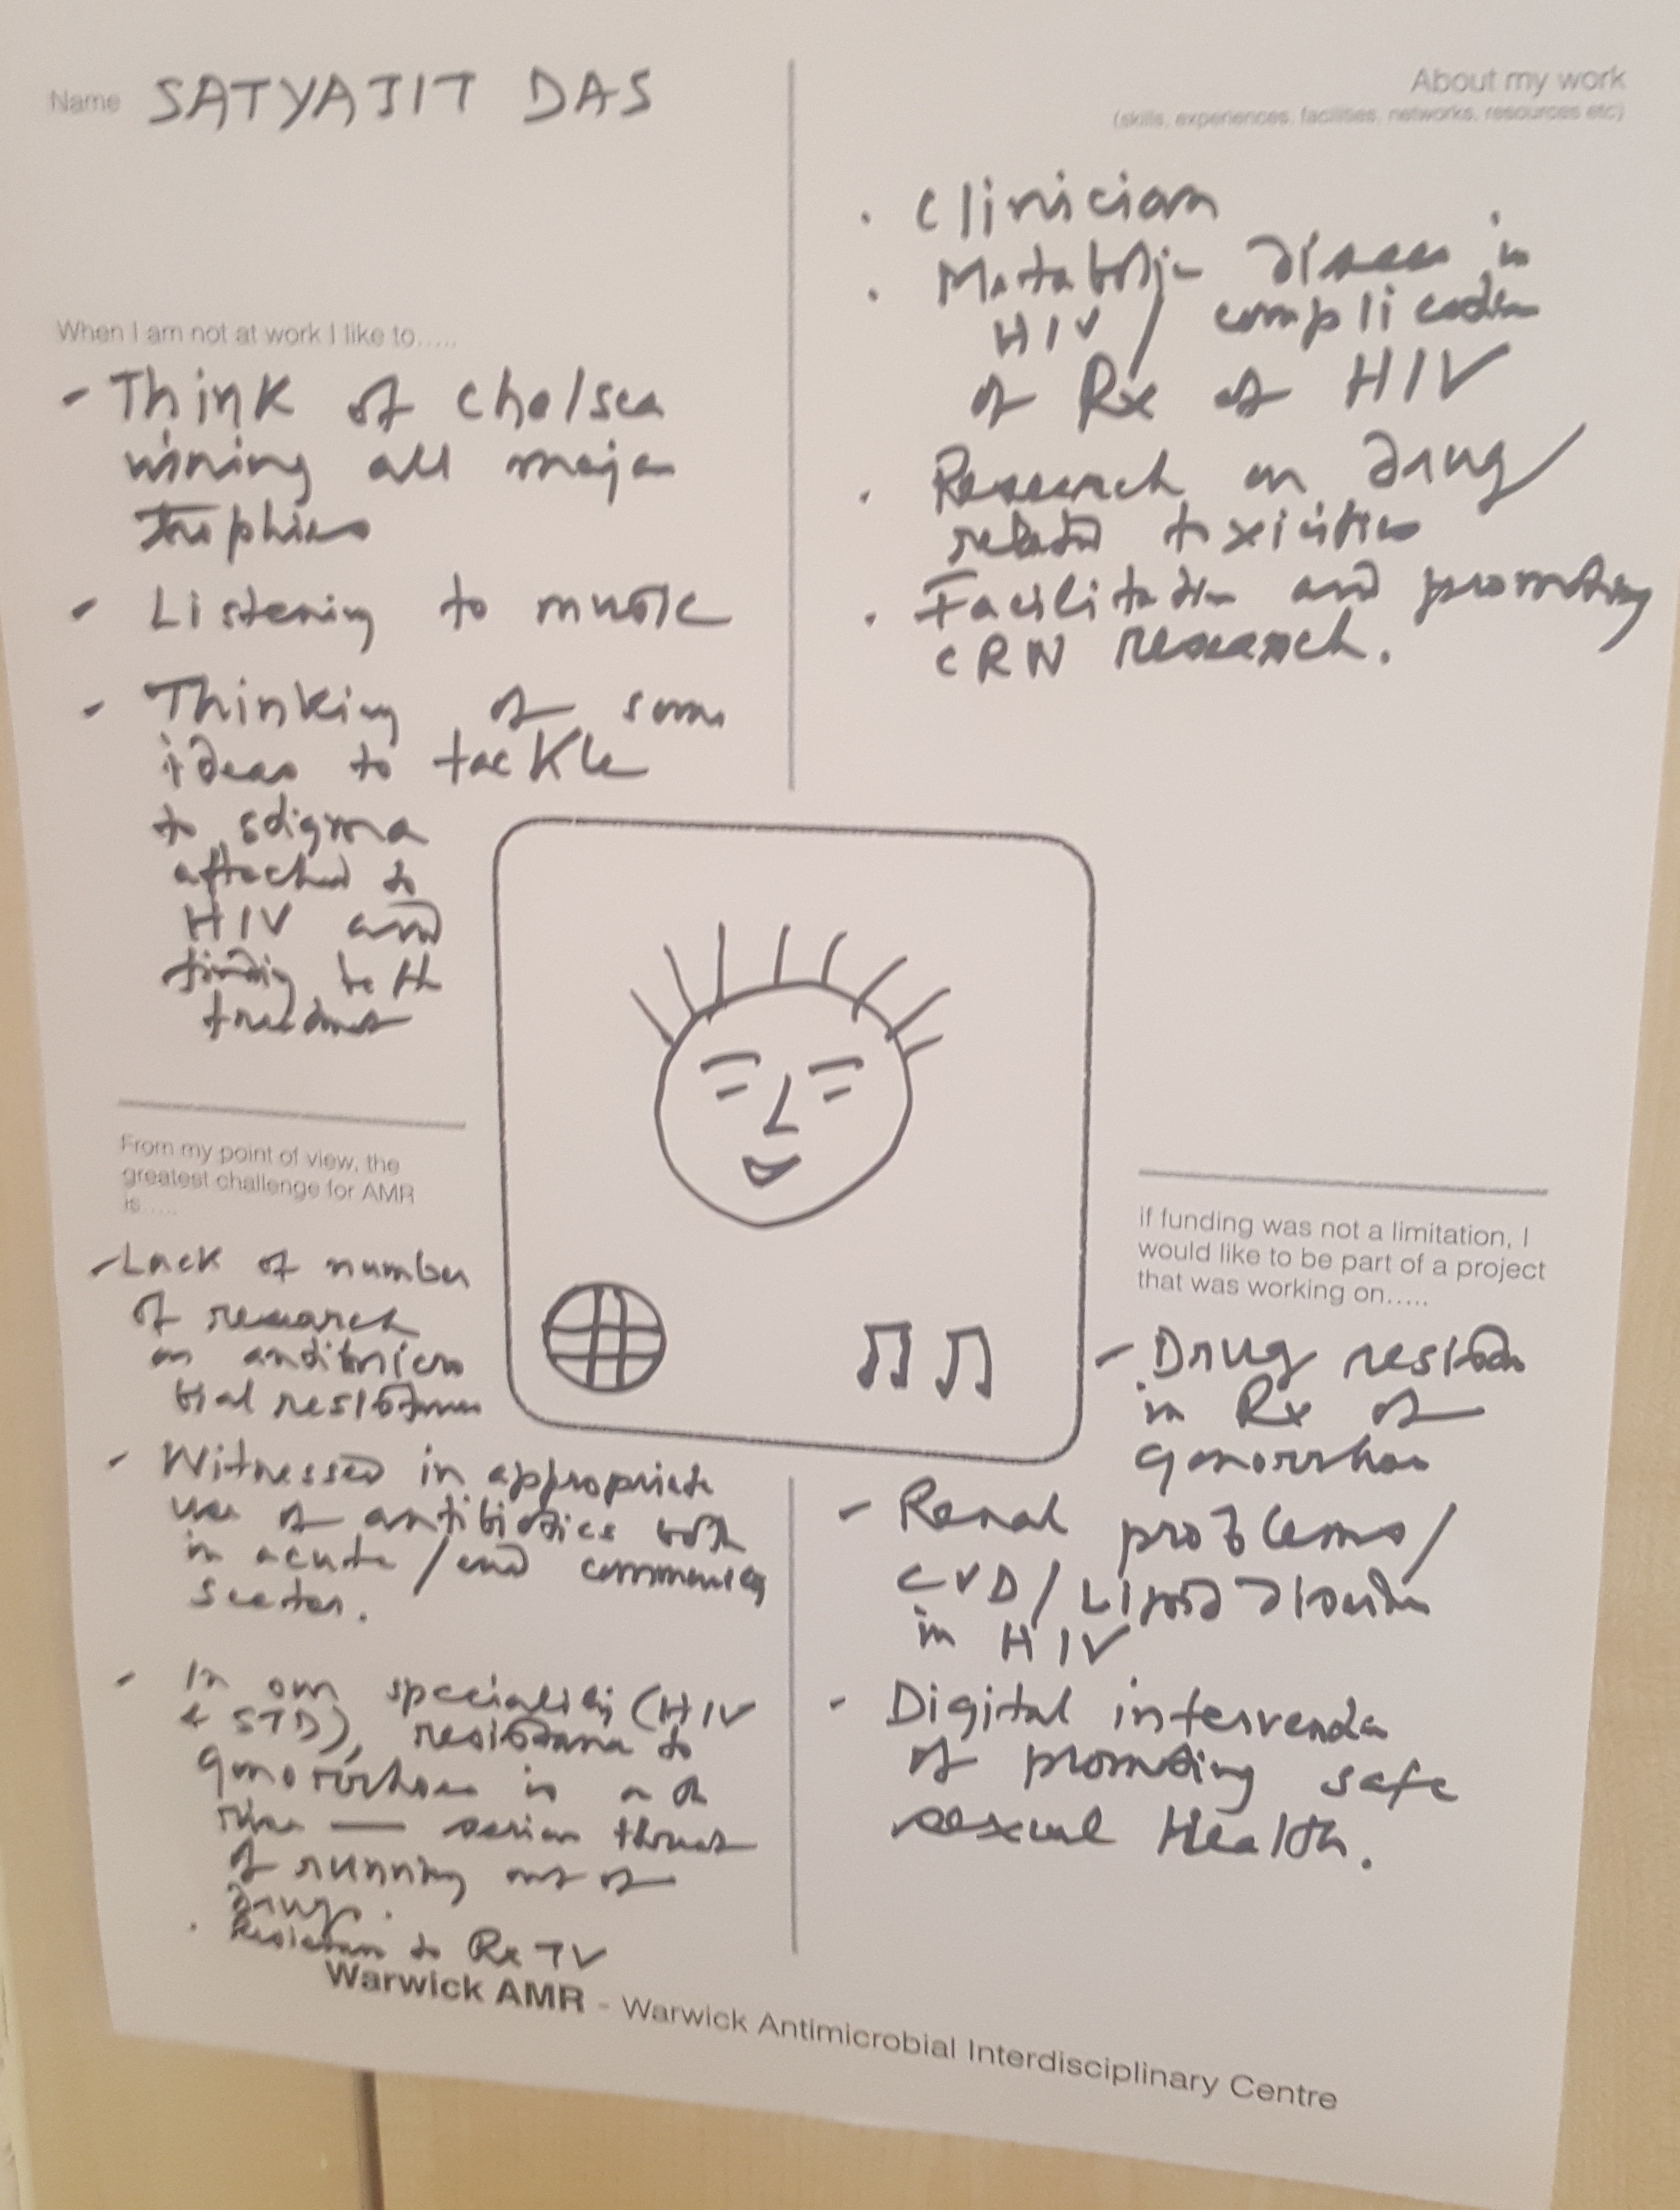 Name SATYAJIT DAS
When I am not at work I like to.....
- Think of Chelsea
wining all major
trophies
- Listening to music
- Thinking of some
ideas to tackle
to stigma
attached to
HIV and
finding
treatment
About my work
(skills, experiences, facilities, networks, resources etc)
· Clinician
· Metabolic disease in
HIV / complication
of Rx of HIV
· Research on drug
related toxicities
· Facilitation and promoting
CRN research.
From my point of view, the
greatest challenge for AMR
is.....
- Lack of number
of research
on antimicro
bial resistance
- Witnessed in appropriate
use of antibiotics both
in acute / and community
sector.
- In our speciality (HIV
& STD), resistance to
gonorrhoea is on a
rise — serious threat
of running out of
drugs.
· Resistance to Rx
if funding was not a limitation, I
would like to be part of a project
that was working on.....
- Drug resistance
in Rx of
gonorrhoea
- Renal problems /
CVD / Lipid disorder
in HIV
- Digital intervention
of promoting safe
sexual Health.
Warwick AMR - Warwick Antimicrobial Interdisciplinary Centre